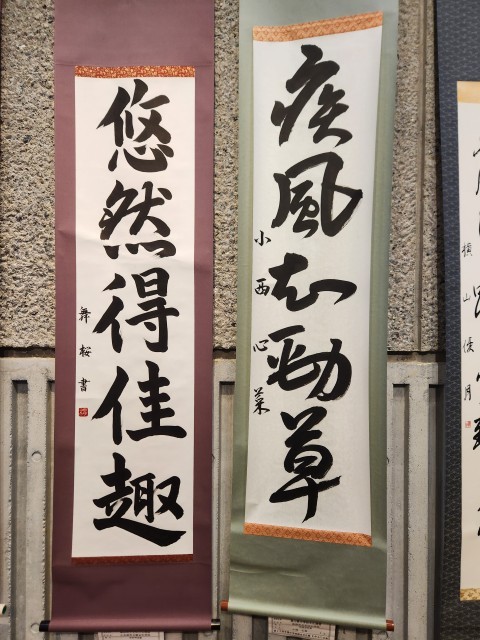 横山優月
疾風知勁草
小西心菜
悠然得佳趣
舞桜書